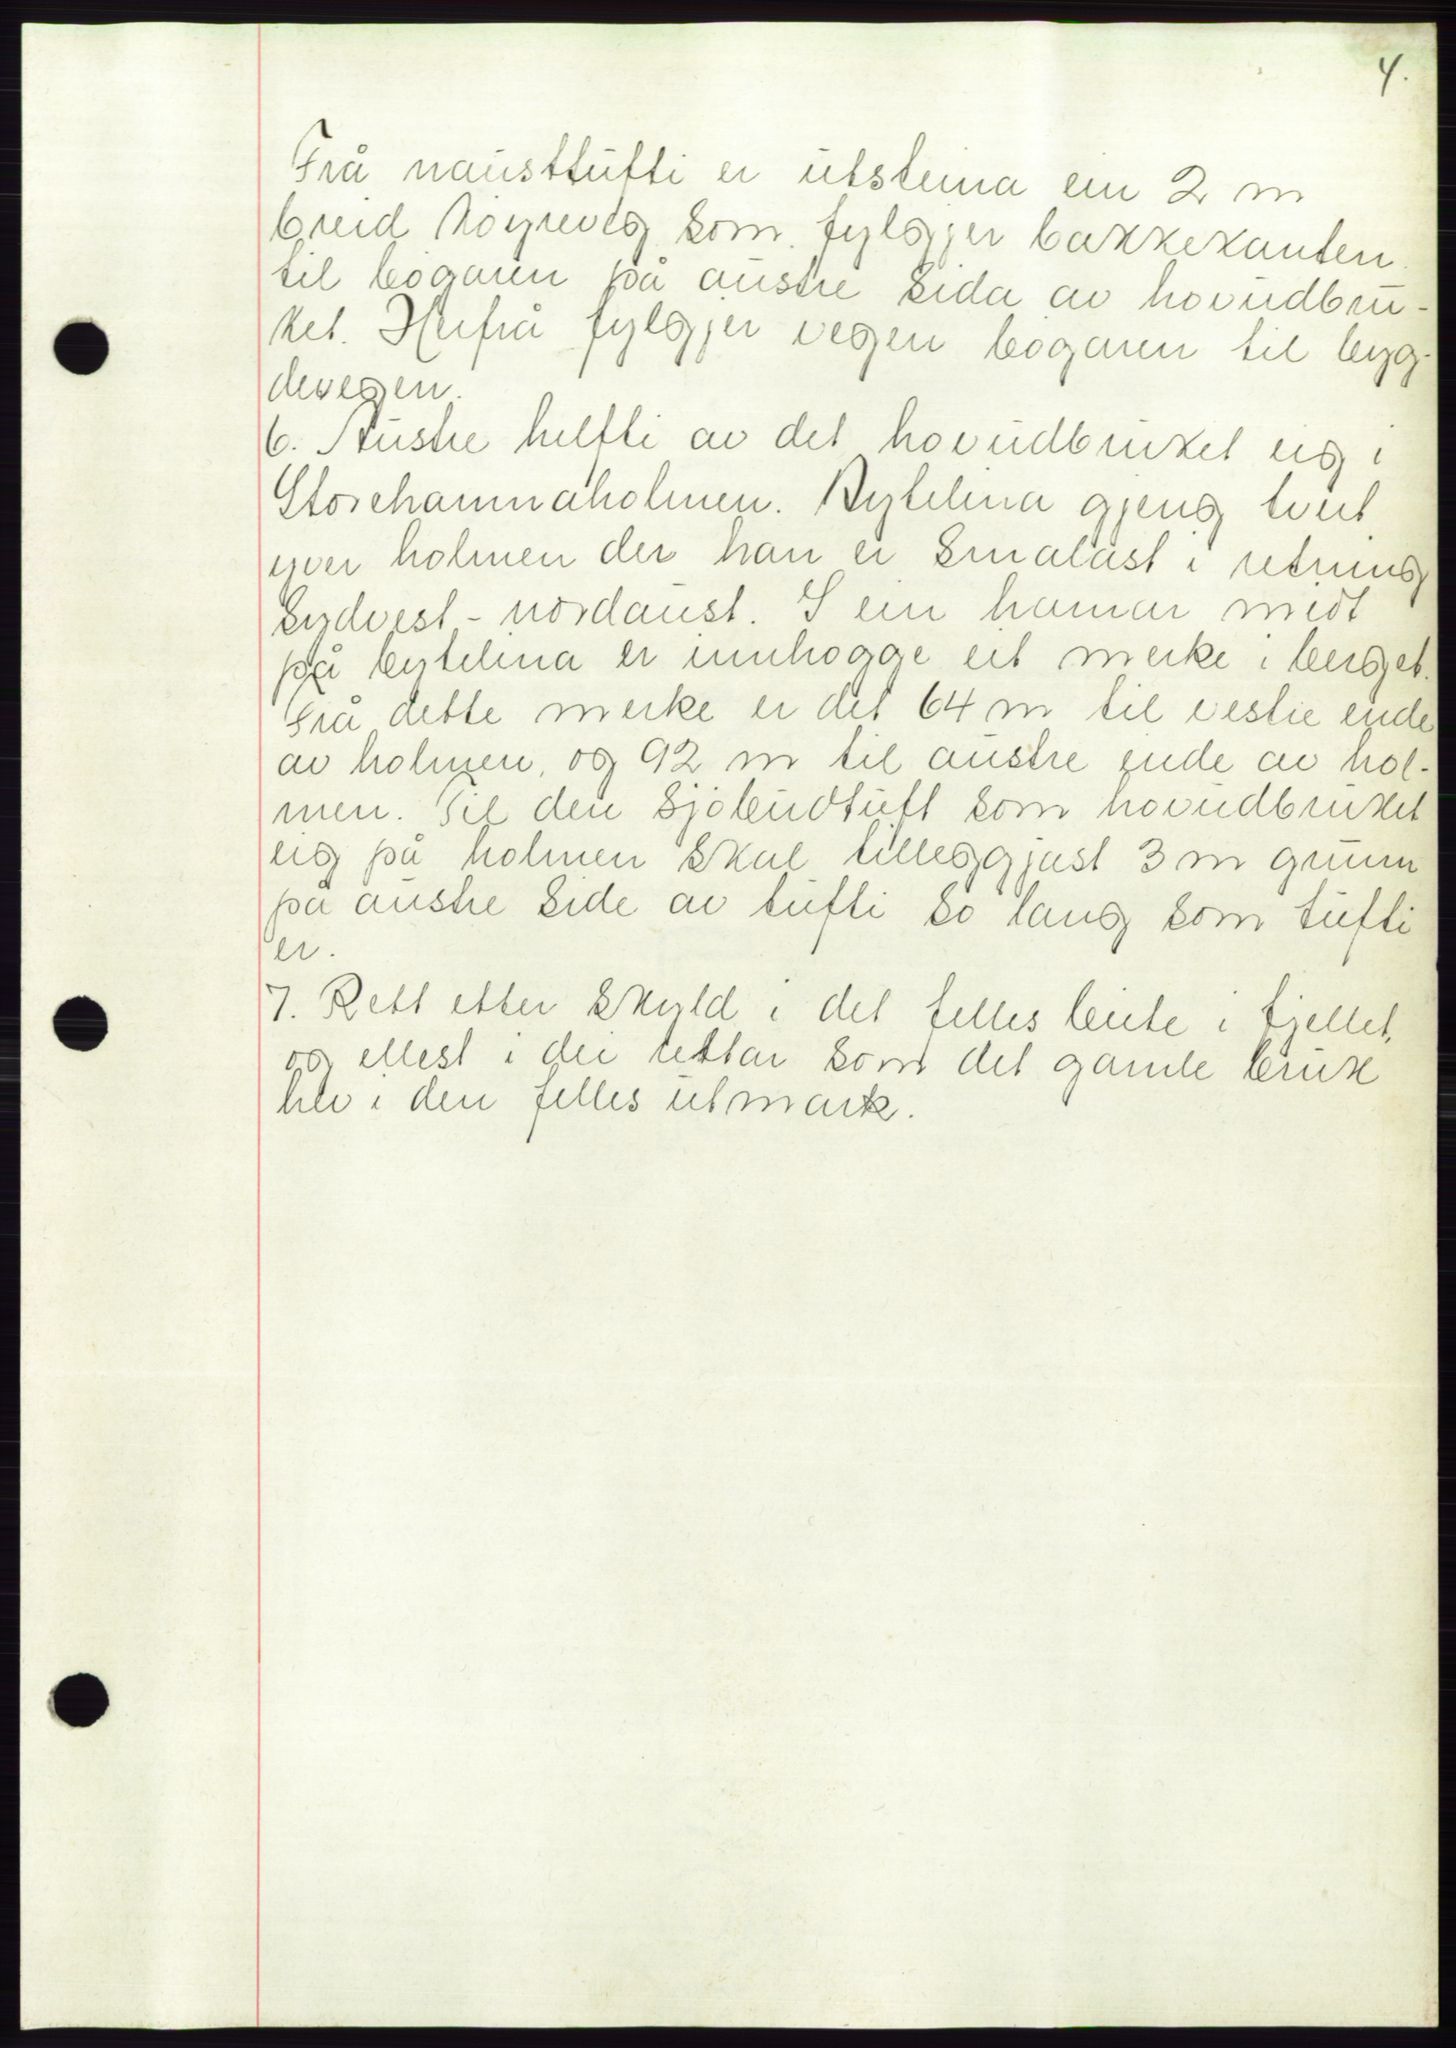 4.
Frå nausttufti er utsteina ein 2 m
breid køyreveg som fylgjer bakkekanten
til bøgaren på austre sida av hovudbru-
ket. Herfrå fylgjer vegen bøgaren til byg-
devegen.
6. Austre helfti av det hovudbruket eig i
Storehamnaholmen. Bytelina gjeng tvert
yver holmen der han er smalast i retning
sydvest - nordaust. I ein hamar midt
på bytelina er innhogge eit merke i berget.
Frå dette merke er det 64 m til vestre ende
av holmen, og 92 m til austre ende av hol-
men. Til den sjøbudtuft som hovudbruket
eig på holmen skal tilleggjast 3 m grunn
på austre side av tufti so lang som tufti
er.
7. Rett etter skyld i det felles beite i fjellet,
og ellest i dei rettar som det gamle bruk
hev i den felles utmark.